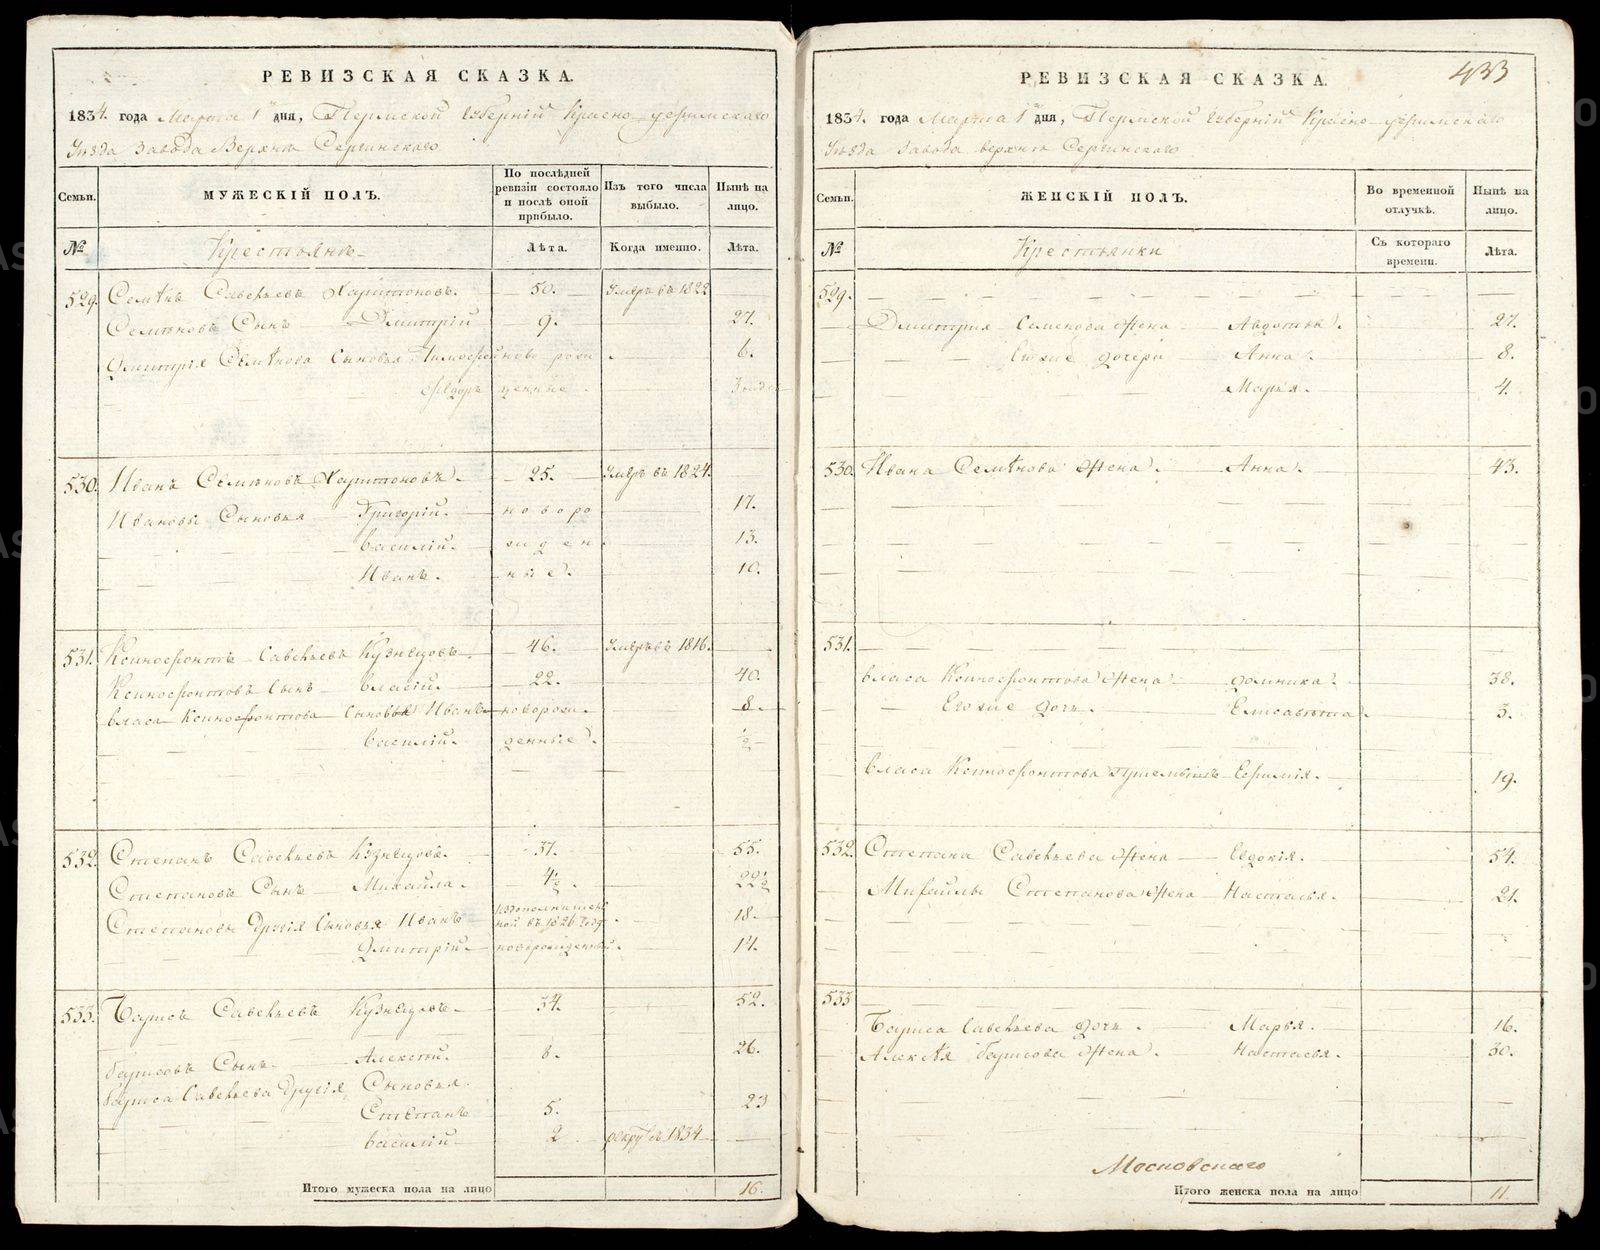 РЕВИЗСКАЯ СКАЗКА.
1834. года Марта 1 дня, Пермской Губерніи Красно уфимскаго
Уѣзда Завода Верхне Сергинскаго
Семьи.
МУЖЕСКІЙ ПОЛЪ.
По послѣдней ревизіи состояло и послѣ оной прибыло.
Изъ того числа выбыло.
Нынѣ на лицо.
№
Крестьяне
Лѣта.
Когда именно.
Лѣта.
529. Семенъ Савельевъ Харитоновъ. 50. Умеръ въ 1822
Семеновъ Сынъ Дмитрій 9. 27.
Дмитрія Семенова Сыновья Тимофей ново рож 6.
Федоръ денные
530. Иванъ Семеновъ Харитоновъ. 25. Умеръ въ 1824.
Ивановы Сыновья Григорій. новоро 17.
Василій. жден 13.
Иванъ. ные. 10.
531. Ксенофонтъ Савельевъ Кузнецовъ. 46. Умеръ въ 1816.
Ксенофонтовъ Сынъ Власій. 22. 40.
Власа Ксенофонтова Сыновья Иванъ новорож 8.
Василій. денные. ½
532. Степанъ Савельевъ Кузнецовъ. 37. 55.
Степановъ Сынъ Михайла. 4½. 22½
Степановы Другія Сыновья Иванъ 18.
Дмитрій. новорожденный. 14.
533. Бориса Савельевъ Кузнецовъ. 34. 52.
Борисовъ Сынъ. Алексѣй. 8. 26.
Бориса Савельева Другія Сыновья.
Степанъ 5. 23
Василій 2 рекрут. 1834
Итого мужеска пола на лицо 16.
РЕВИЗСКАЯ СКАЗКА.
433
1834. года Марта 1 дня, Пермской Губерніи Красно уфимскаго
Уѣзда Завода Верхне Сергинскаго
Семьи.
ЖЕНСКІЙ ПОЛЪ.
Во временной отлучкѣ.
Нынѣ на лицо.
№
Крестьянки
Съ котораго времени.
Лѣта.
529.
Дмитрія Семенова Жена Авдотья. 27.
Егожие дочери Анна. 8.
Марья. 4.
530. Ивана Семенова Жена. Анна. 43.
531.
Власа Ксенофонтова Жена Домника. 38.
Егожие дочь. Елисавета. 3.
Власа Ксенофонтова Ефимія. 19.
532. Степана Савельева Жена Евдокія. 54.
Михайлы Степанова Жена Настасья. 21.
533
Бориса Савельева дочь. Марья. 16.
Алексѣя Борисова Жена. Настасья. 30.
Московскаго
Итого женска пола на лицо 11.